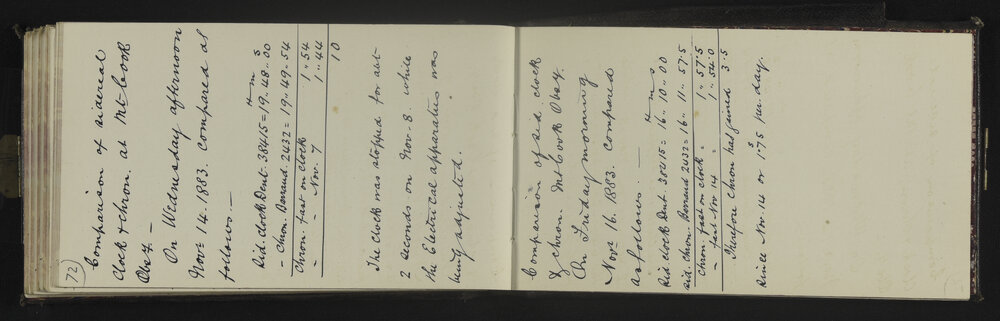 72)
Comparison of sidereal
Clock & chron. at Mt. Cook
Obsy. —
On Wednesday afternoon
Novr 14. 1883. compared as
follows: —
h m s
Sid. clock Dent. 38415 = 19.. 48.. 00
- Chron. Barraud 2432 = 19.. 49.. 54
Chron. fast on clock 1.. 54
- - Nov. 7 1.. 44
10
The clock was stopped for abt
2 seconds on Nov. 8. while
the Electrical apparatus was
being adjusted.
Comparison of sid. clock
& chron. Mt Cook Obsy.
On Friday morning
Novr 16. 1883. compared
as follows —
h m s
Sid clock Dent. 38415 = 16.. 10.. 00
sid. chron. Barraud 2432 = 16.. 11.. 57.5
Chron. fast on clock. 1.. 57.5
- fast Nov 14 - 1.. 54.0
Therefore Chron has gained 3.5
since Nov. 14 or 1.75 s per. day.